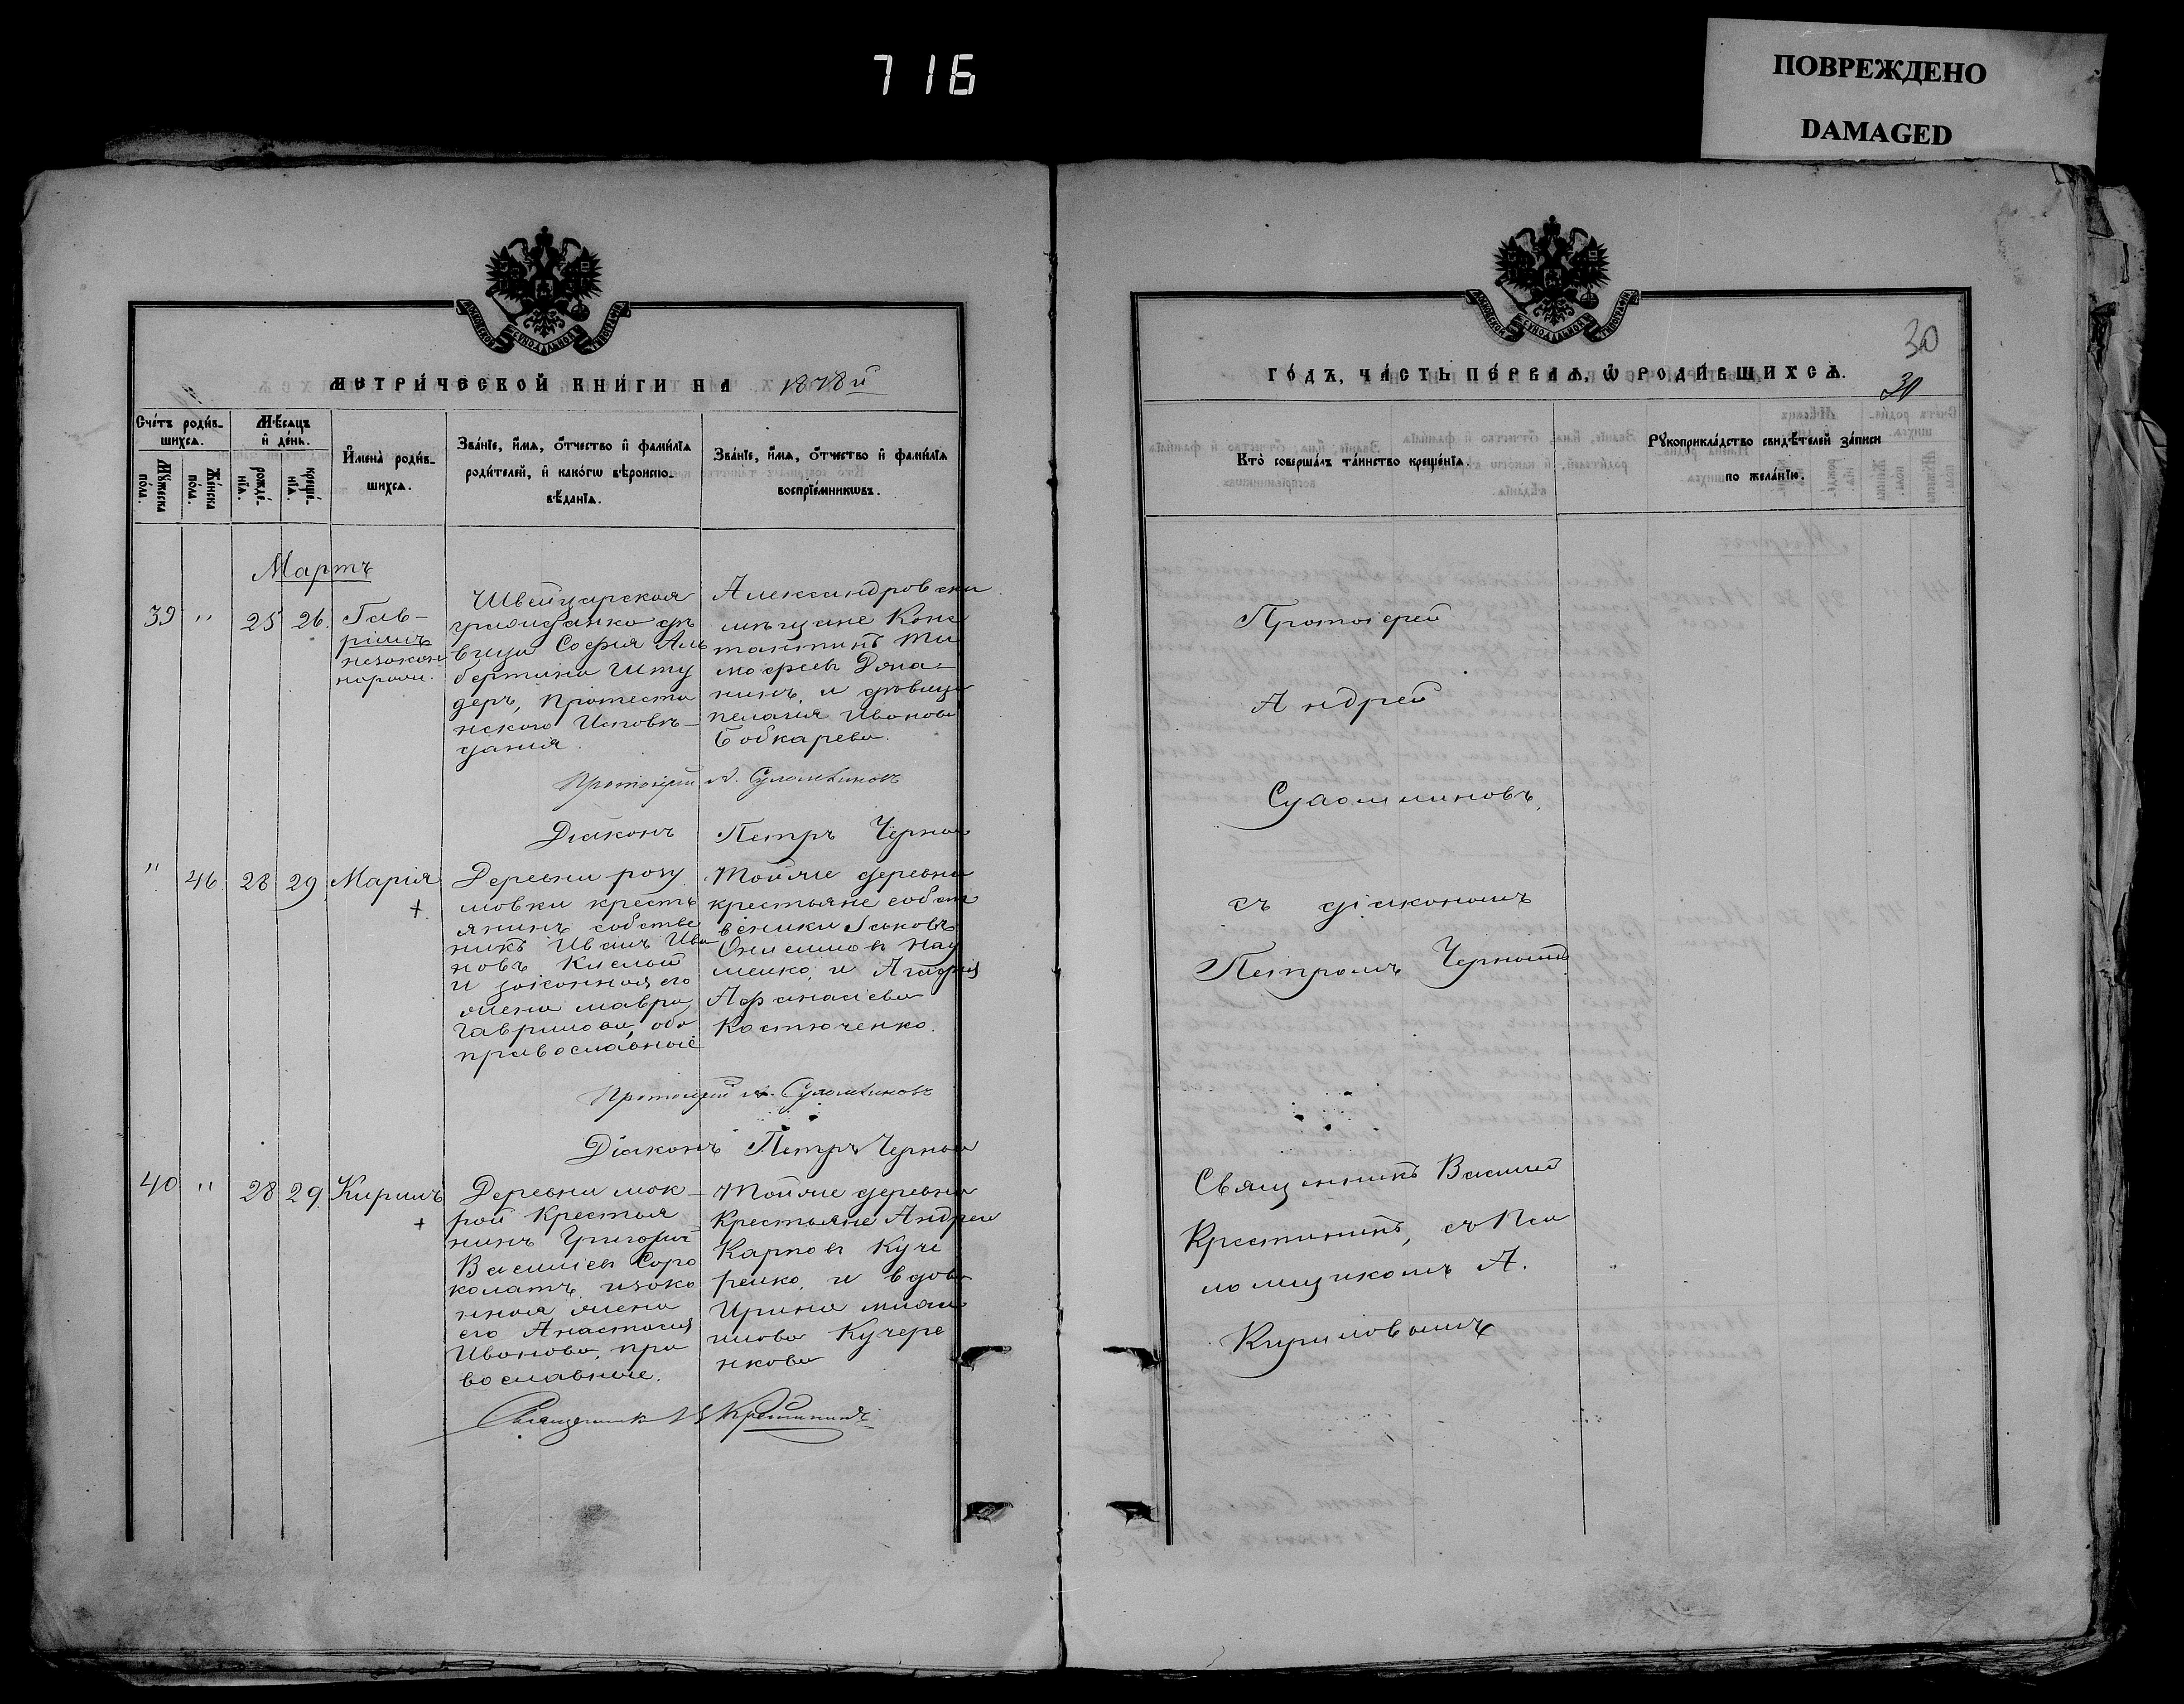 716
ПОВРЕЖДЕНО
DAMAGED
МОСКОВСКОЙ СѴНОДАЛЬНОЙ ТИПОГРАФІИ
МЕТРИ́ЧЕСКОЙ КНИ́ГИ НА 1878й
Сче́тъ роди́в-
шихсѧ.
Мꙋ́жеска по́ла.
Же́нска по́ла.
Мѣ́сѧцъ
и҆ де́нь.
рожде́-нїѧ.
креще́-нїѧ.
И҆мена̀ роди́в-
шихсѧ.
Зва́нїе, и҆́мѧ, ѻ҆́тчество и҆ фами́лїѧ
роди́телей, и҆ како́гѡ вѣроиспо-
вѣ́данїѧ.
Зва́нїе, и҆́мѧ, ѻ҆́тчество и҆ фами́лїѧ
воспрїе́мникѡвъ.
Мартъ
39 " 25 26. Гав-
ріилъ
незакон
нарожд.
Швейцарская
гражданка дѣ
вица София Аль
бертина Шту
деръ, Протеста
нскаго Исповѣ-
данія.
Александровски
мѣщане Конс
тантинъ Ти
мофеевъ Дяча-
нинъ, и дѣвица
Пелагія Иванова
Бобкарева.
Протоіерей А. Суломиновъ
Діаконъ Петръ Черный
" 46. 28 29. Марія
+
Деревни розу
мовки кресть
янинъ собстве
никъ Иванъ Ива
новъ Кислый
и законная его
жена Мавра
Гаврилова, оба
православные
Тойже деревни
крестьяне собст
веники Яковъ
Онисимовъ Нау
менко, и Агафія
Афанасіева
Костюченко.
Протоіерей А. Суломиновъ
Діаконъ Петръ Черный
40 " 28 29. Кирилъ
+
Деревни мок-
рой Крестья
нинъ Григорій
Василіевъ Соро
колатъ, изако
нная жена
его Анастасия
Иванова, пра
вославные.
Тойже деревни
Крестьяне Андрей
Карповъ Куче
ренко, и вдова
Ирина
Кучере
нкова
Священникъ В Крестининъ
ГО́ДЪ, ЧА́СТЬ ПЕ́РВАѦ, Ѡ҆ РОДИ́ВШИХСѦ.
30
30
Кто̀ соверша́лъ та́инство креще́нїѧ.
Рꙋкоприкла́дство свидѣ́телей за́писи
по жела́нїю.
Протоіерей
Андрей
Суломиновъ,
съ діакономъ
Петромъ Чернымъ
Священникъ Василій
Крестининъ, съ Пса
ломщикомъ А.
Кириловымъ